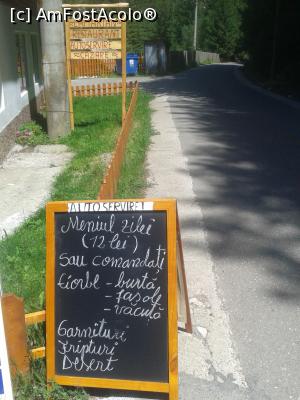 [c] AmFostAcolo®
RESTAURANT
AUTOSERVIRE
CAZARE
AUTOSERVIRE!
Meniul zilei
(12 lei)
sau comandați
Ciorbe - burtă
- fasole
- văcuță
Garnituri
Fripturi
Desert